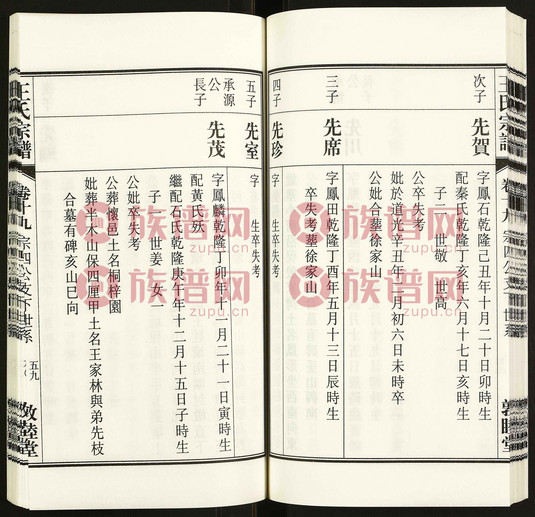 王氏宗譜
次子
先賀
字鳳石乾隆己丑年十月二十日卯時生
配秦氏乾隆丁亥年六月十七日亥時生
子二 世敬 世高
公卒失考
妣於道光辛丑年三月初六日未時卒
公妣合塟徐家山
三子
先席
字鳳田乾隆丁酉年五月十三日辰時生
卒失考塟徐家山
四子
先珍
字
生卒失考
五子
先室
字
生卒失考
承源公長子
先茂
字鳳麟乾隆丁卯年十一月二十一日寅時生
配黃氏歿
繼配石氏乾隆庚午年十二月十五日子時生
子一 世姜 女一
公妣卒失考
公葬懷邑土名桐梓園
妣葬半木山保四厘甲土名王家林與弟先枝
合墓有碑亥山巳向
王氏宗譜
卷十九
宗四公支下世系
五九
敦睦堂
敦睦堂
族谱网
族谱网
族谱网
族谱网